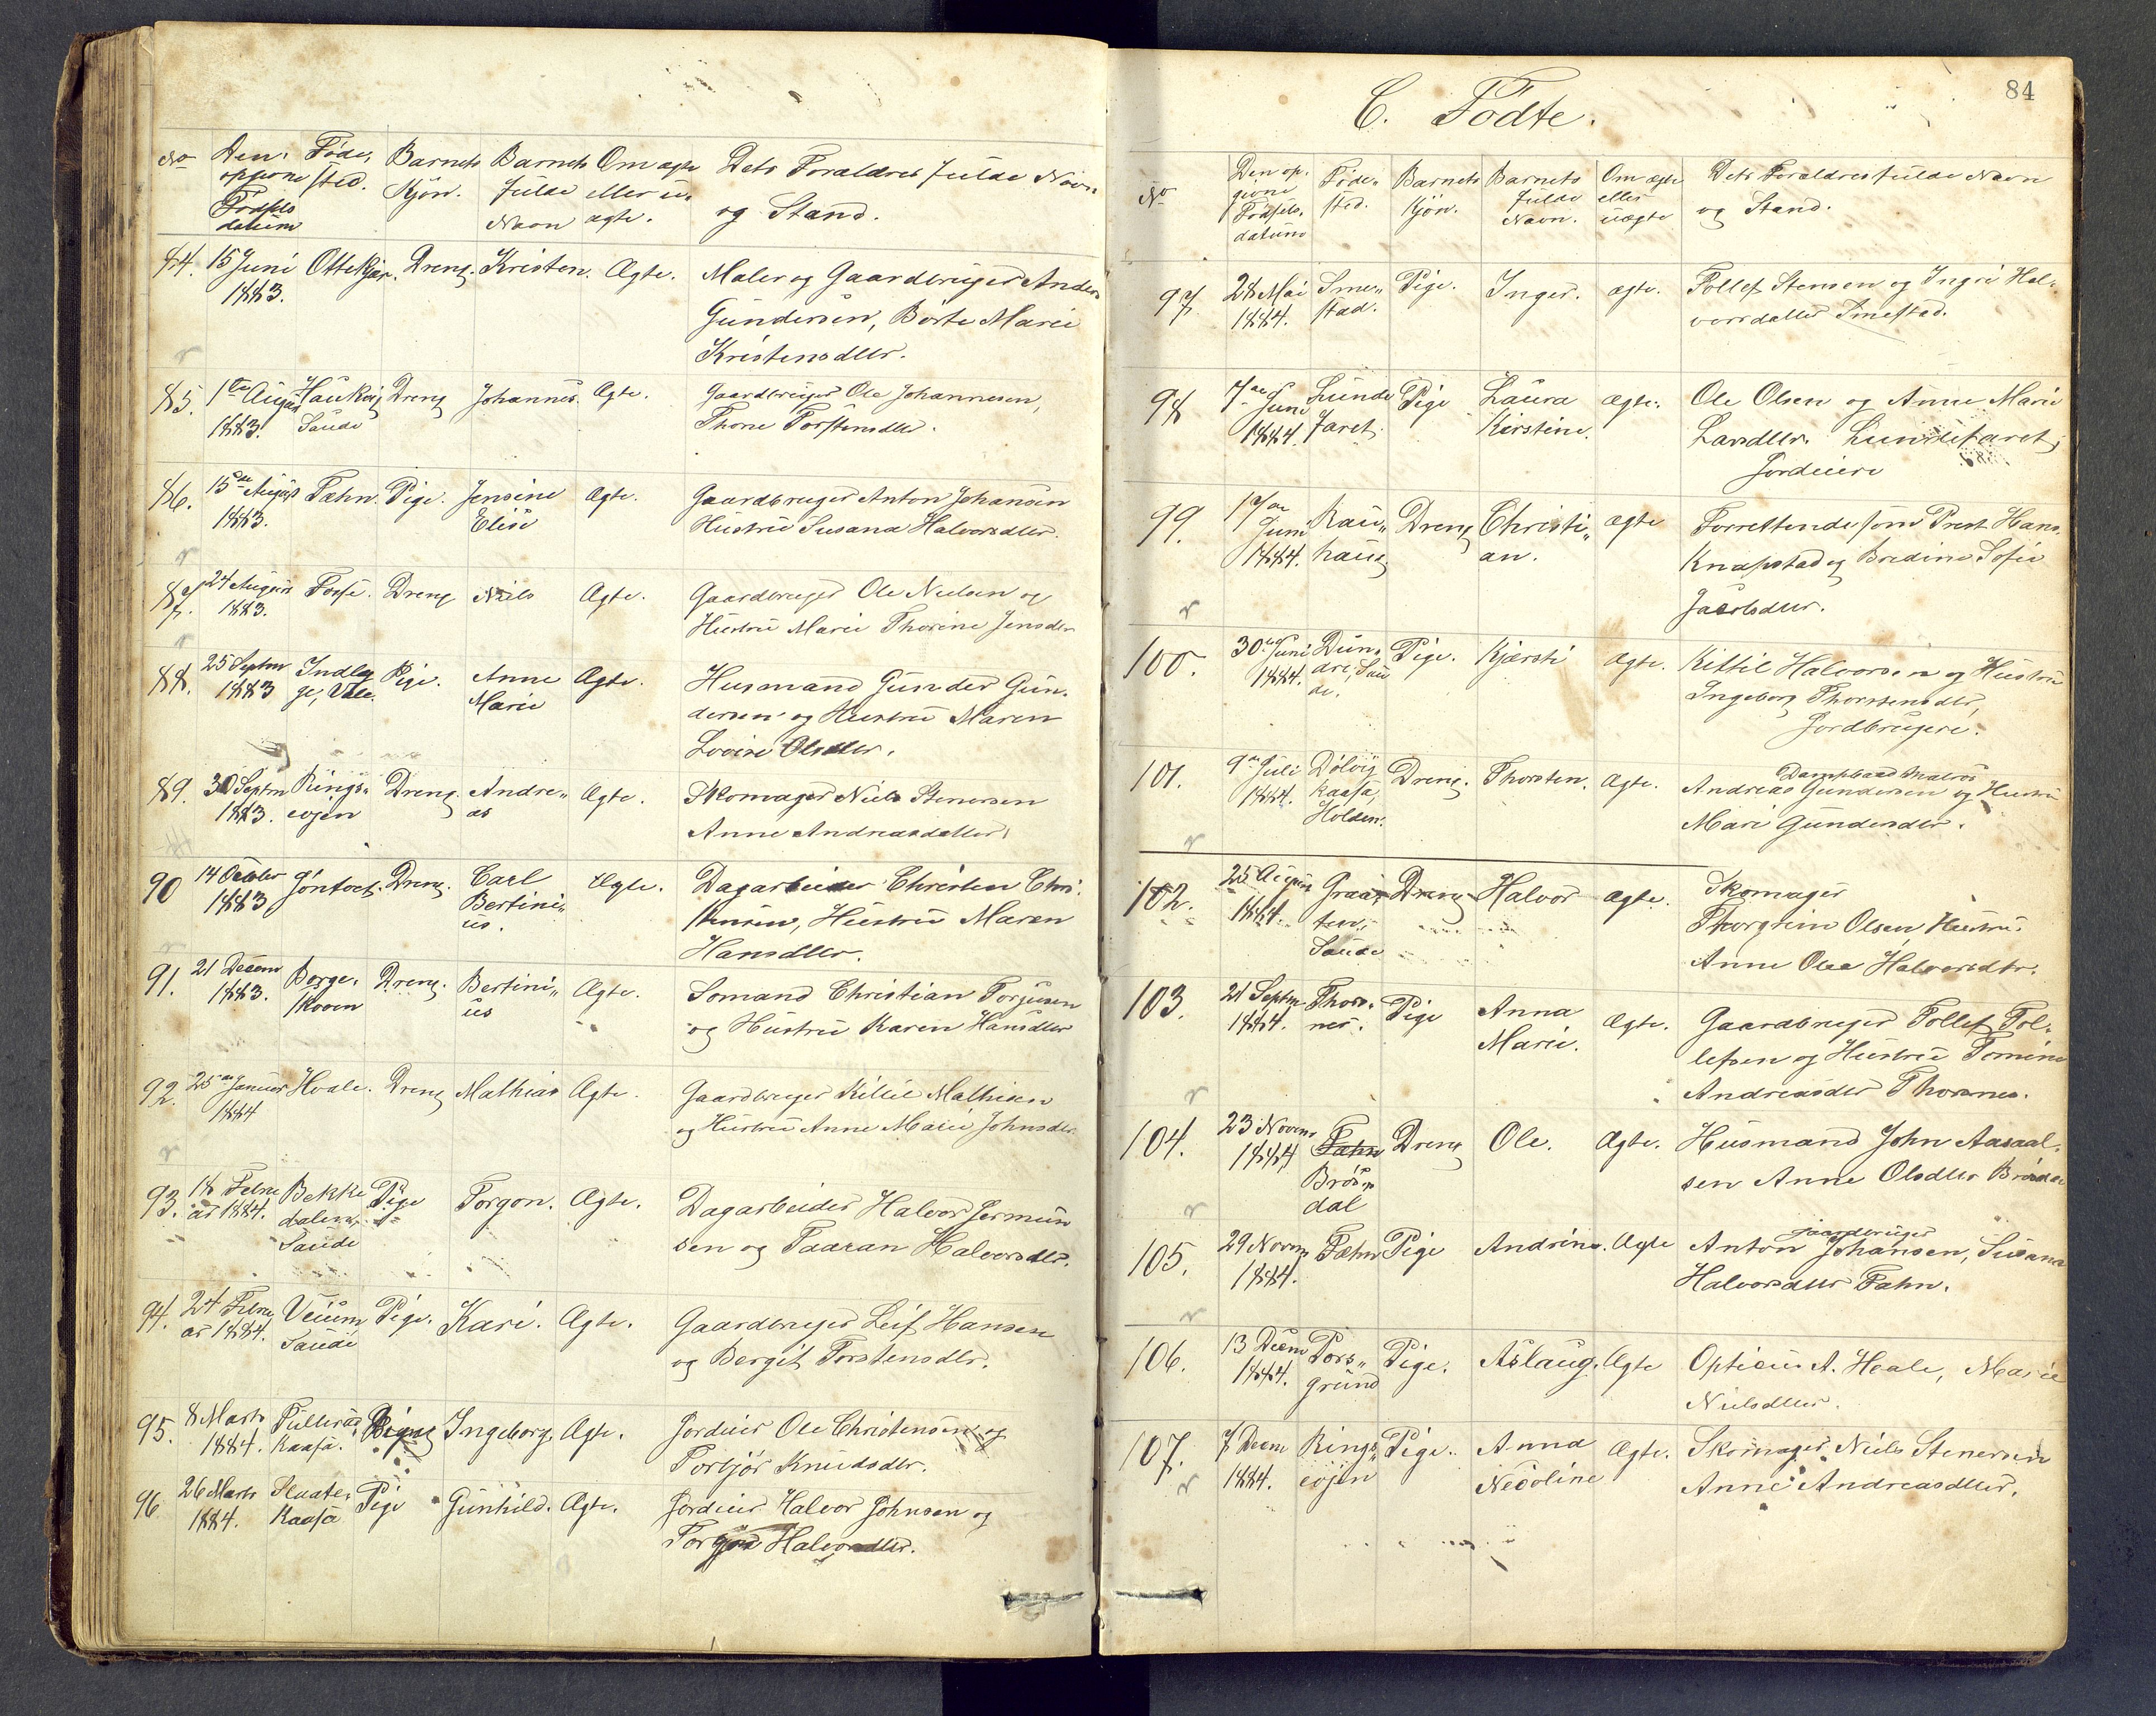 No Den opgivne Fødselsdatum Fødested. Barnets Kjøn. Barnets fulde Navn Om ægte eller uægte. Dets Foraldres fulde Navn og Stand.
84. 15 Juni 1883. Ottekjær. Dreng. Kristen. Ægte. Maler og Gaardbruger Anders
Gundersen, Börte Marie
Kristensdtr.
85. 1ste August 1883. Haukvig Saude Dreng Johannes. Ægte. Gaardbruger Ole Johannesen,
Thone Torstensdtr.
86. 15de August 1883. Fæhn. Pige. Jensine Elise Ægte. Gaardbruger Anton Johansen
Hustru Susana Halvorsdtr.
87. 24 August 1883. Fosse. Dreng Niels Ægte. Gaardbruger Ole Nielsen og
Hustru Marie Thorine Jensdtr
88. 25 Septm 1883 Pige. Anne Marie Ægte. Husmand Gunder Gun-
dersen og Hustru Maren
Lovise Olsdtr.
89. 30 Septm 1883. Rings- evjen Dreng. Andre- as Ægte. Skomager Niels Stenersen
Anne Andreasdatter
90 14 October 1883 Dreng. Carl Bertini- us. Ægte. Dagarbeider Christen Chri-
stensen, Hustru Maren
Hansdtr.
91. 21 Decem 1883. Borge- skoven Dreng. Bertini- us Ægte. Somand Christian Torjusen
og Hustru Karen Hansdtr
92. 25de Januar 1884 Hvale. Dreng Mathias Ægte. Gaardbruger Kittil Mathisen
og Hustru Anne Marie Johnsdtr.
93. 18 Febru ar 1884. Bekke dalen, Saude Pige Torgon. Ægte. Dagarbeider Halvor Germun
sen og Taaran Halvorsdtr.
94. 24 Febru ar 1884. Veium Saude Pige. Kari. Ægte. Gaardbruger Leif Hansen
og Bergit Torstensdtr.
95. 8 Marts 1884. Kaasa. Pige Ingeborg. Ægte. Jordeier Ole Christensen og
Torbjör Knudsdtr.
96 26 Marts 1884. Slaate, Kaasa Pige Gunhild. Ægte. Jordeier Halvor Johnsen og
Halvorsdtr.
84
C. Fodte.
No Den opgivne Fødselsdatum Fødested. Barnets Kjøn. Barnets fulde Navn. Om ægte eller uægte Dets Foraldres fulde Navn
og Stand.
97 28 Mai 1884. Sme- stad. Pige. Inger. ægte. Tollef Stensen og Ingri Hal-
vorsdatter Smestad.
98 7de Juni 1884. Lunde faret. Pige Laura Kirstine. ægte. Ole Olsen og Anne Marie
Larsdtr. Lundefaret,
Jordeiere
99. 17de Juni 1884. Rau- haug Dreng Christi- an. ægte Forrettende som Prest Hans
Knapstad og Bredine Sofie
Jacobsdtr.
100. 30te Juni 1884. Dun- dre, Sau de. Pige. Kjærsti Ægte. Kittil Halvorsen og Hustru
Ingeborg Thorstensdtr,
Jordbrugere.
101. 9de Juli 1884. Dölvig kaasa, Holden. Dreng. Thorsten. Ægte. Dampbaad Matros
Andreas Gundersen og Hustru
Mari Gundersdtr.
102. 25 August 1884. Graa- ten, Saude Dreng Halvor ægte. Skomager
Thorgrim Olsen, Hustru.
Anne Olea Halvorsdtr.
103. 21 Septm 1884. Thors- nes. Pige Anna Marie. Ægte. Gaardbruger Tollef Tol-
lefsen og Hustru Tomine
Andreasdtr Thorsnes.
104. 23 Novem 1884 Fæhn Brös- dal Dreng Ole. Ægte. Husmand John Aasaal-
sen Anne Olsdtr Brösdal
105. 29 Novem 1884. Fæhn Pige Andrine. Ægte gaardbruger
Anton Johansen, Susana
Halvorsdtr Fæhn.
106. 13 Decem 1884. Pors- grund Pige. Aslaug. Ægte Opticus A. Hvale, Marie
Nielsdtr.
107. 7 Decem 1884. Rings- evjen Pige. Anna Nicoline Ægte. Skomager Niels Stenersen
Anne Andreasdtr.